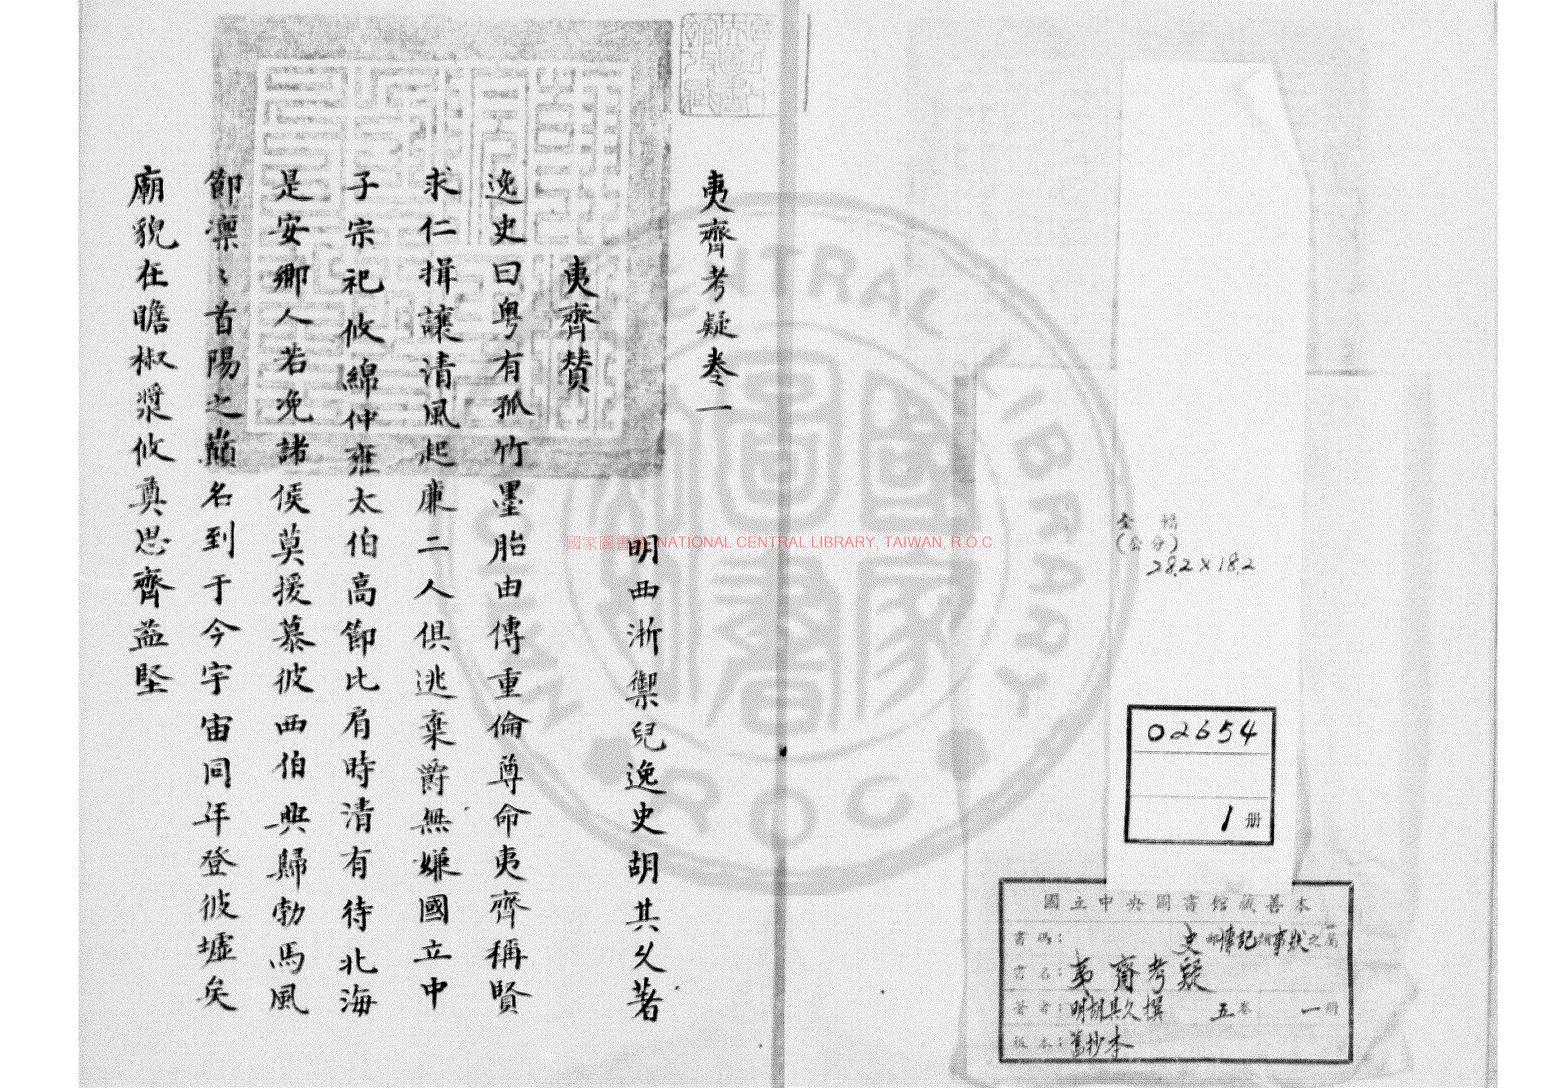 夷齊考疑卷一
明西浙禦兒逸史胡其久著
夷齊贊
逸史曰粵有孤竹墨胎由傳重倫尊命夷齊稱賢
求仁揖讓清風起廉二人俱逃棄爵無嫌國立中
子宗祀攸綿仲雍太伯高節比肩時清有待北海
是安鄉人若浼諸侯莫援慕彼西伯興歸勃馬風
節凜〻首陽之巔名到于今宇宙同年登彼墟矣
廟貌在瞻椒漿攸奠思齊益堅
全幅
(公分)
28.2×18.2
02654
1 册
國立中央圖書館藏善本
書碼： 史部傳記類事狀之屬
書名：夷齊考疑
著者：明胡其久撰 五卷 一册
板本：舊抄本
國家圖書館 NATIONAL CENTRAL LIBRARY, TAIWAN, R.O.C
NATIONAL CENTRAL LIBRARY
ROC
國家圖書館